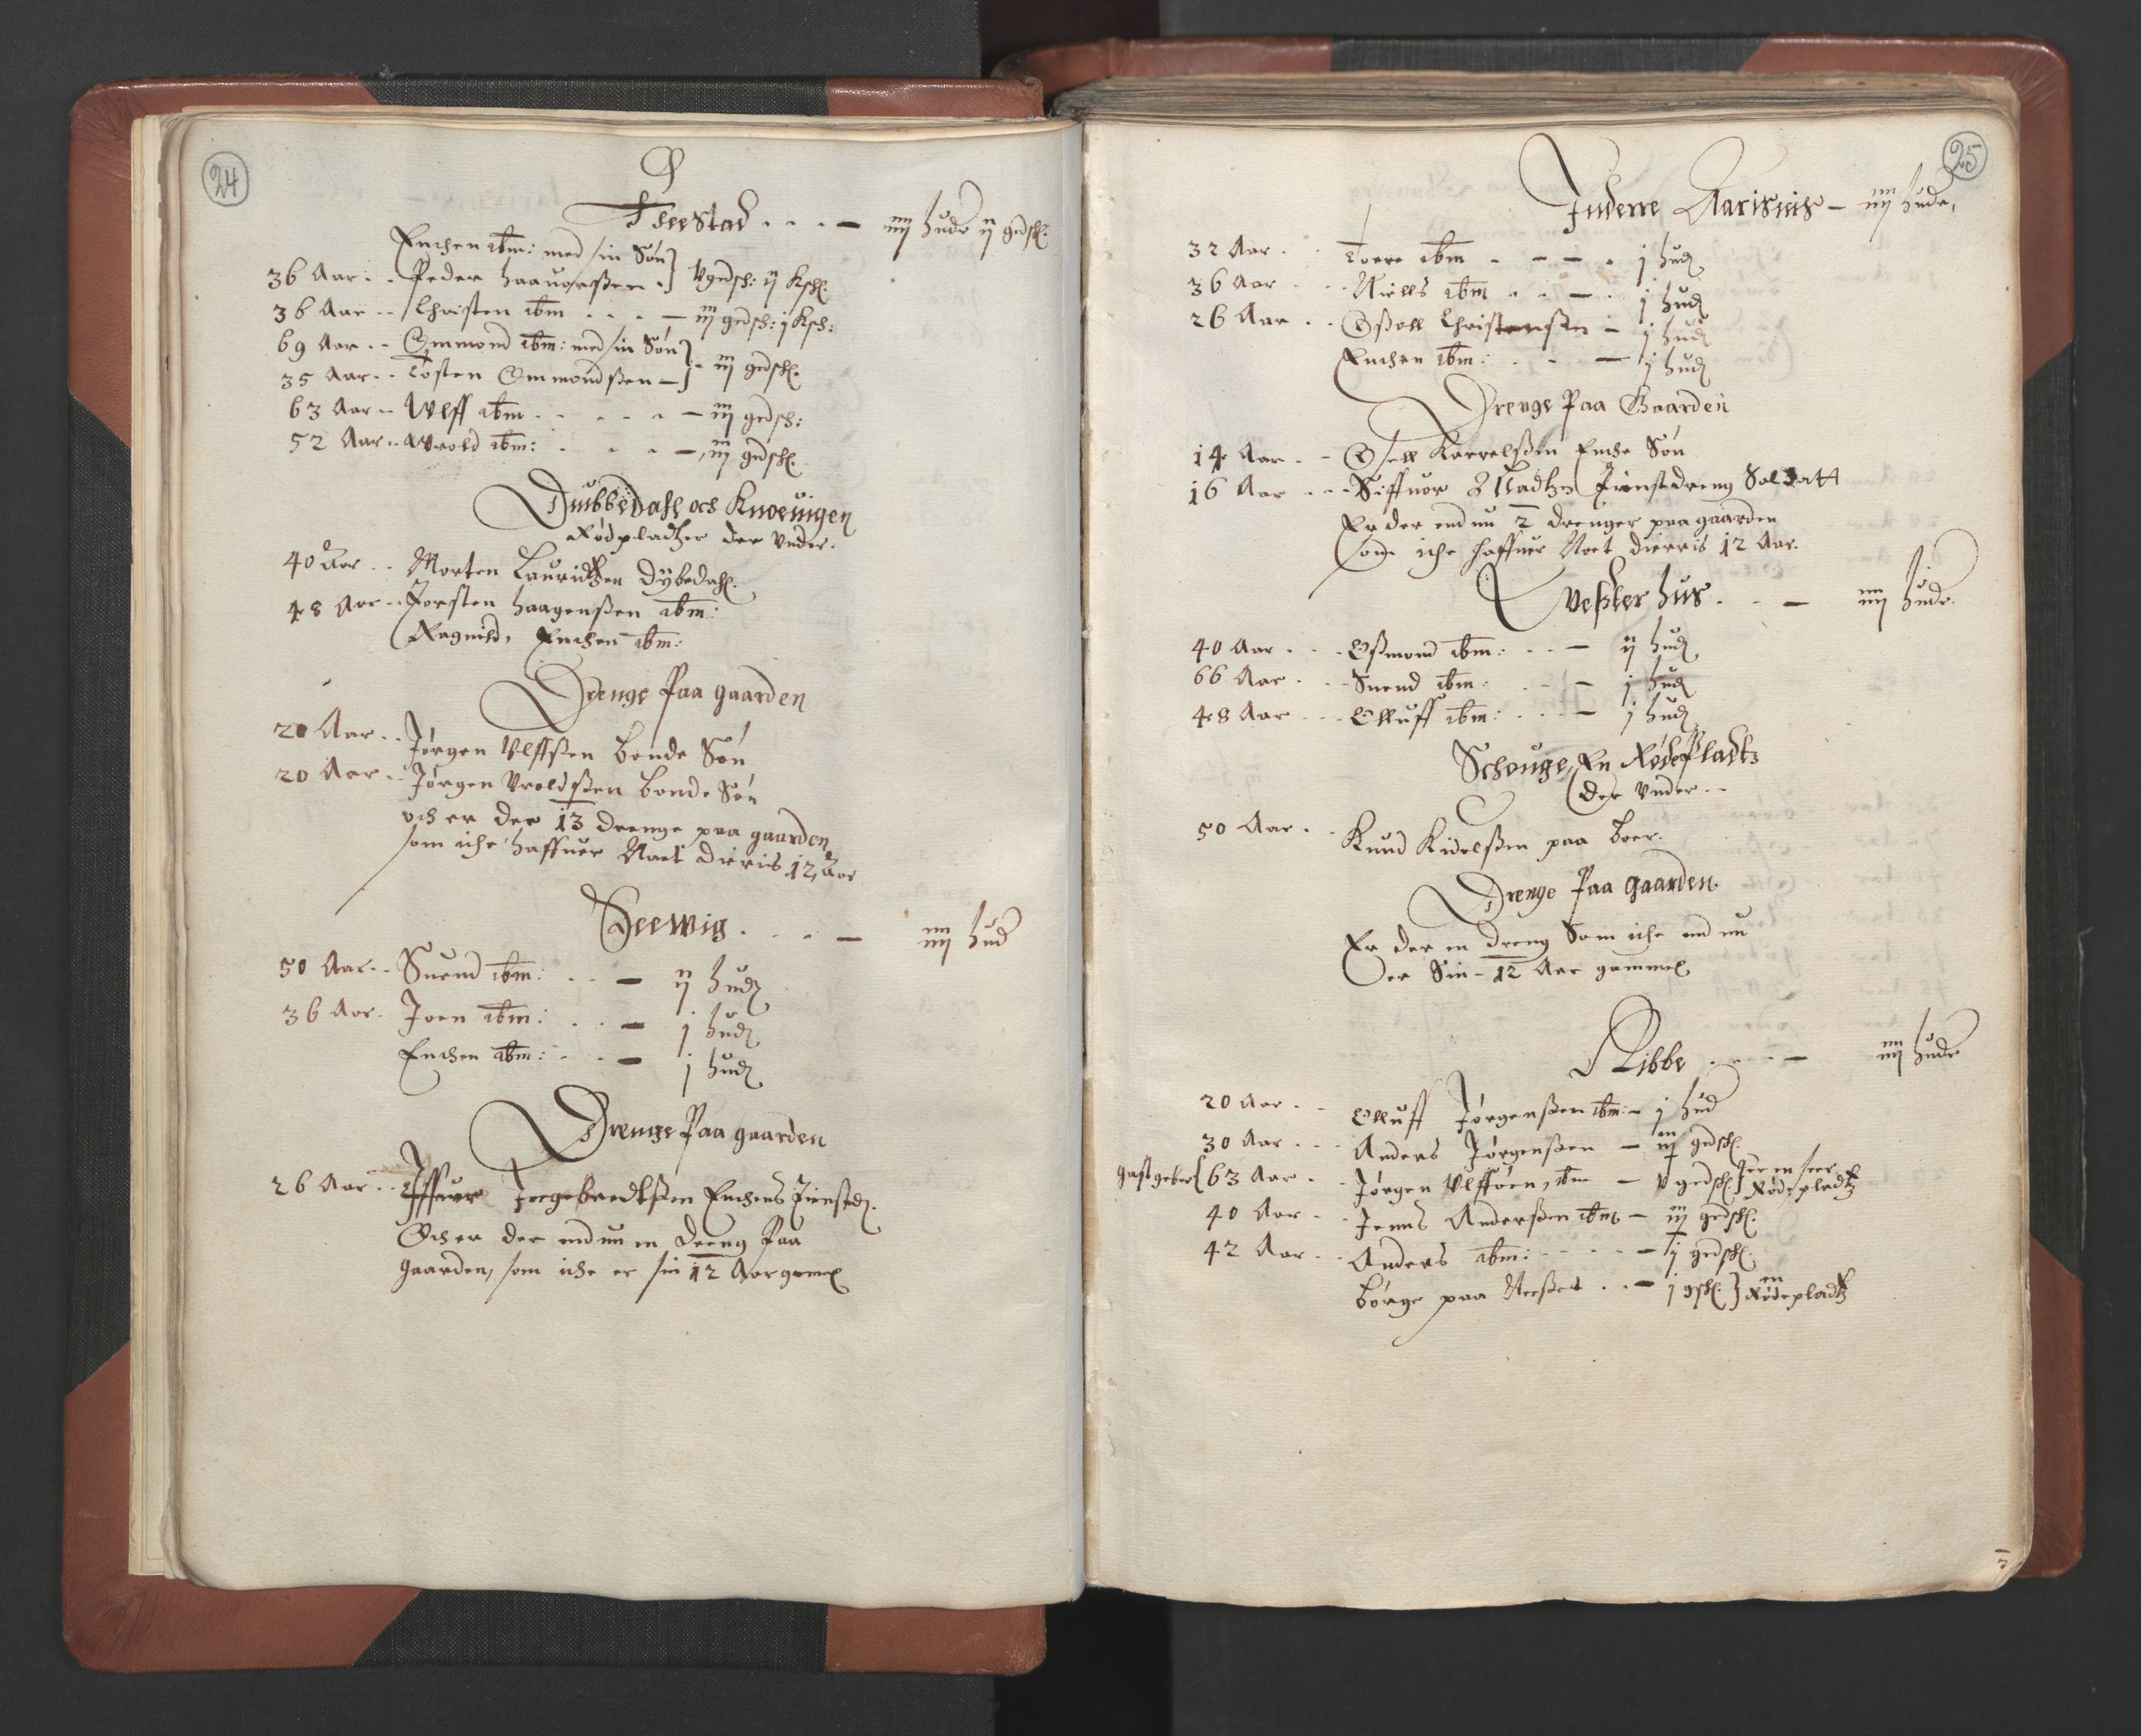 24
Theestad . . . – iiij hude ij gedsk.
Enchen ibm: med sin Søn
36 Aar . . Peder Haauorßen . } v gedsk: ij Ksk.
36 Aar . . Christen ibm . . . – iij gedsk: j Ksk:
69 Aar . . Ommond ibm: med sin Søn
35 Aar . . Tosten Ommondßen – } . iij gedsk.
63 Aar . . Ulff ibm . . . . – iij gedsk:
52 Aar . . Wrold ibm: . . . – iij gedsk.
Duibbedahl och Knoeuigen
Rødpladtzer der under.
40 Aar . . Morten Lauridtzen Dybedahl.
48 Aar . . Torsten Haagenßen ibm:
Ragnild, Enchen ibm:
Drenge Paa gaarden
20 Aar . . Jørgen Ulffßen bonde Søn
20 Aar . . Jørgen Vroldßen bonde Søn
och er der 13 drenge paa gaarden
som iche haffuer Naet dieris 12 Aar
Seewig . . . – iiij hud
50 Aar . . Suend ibm: . . – ij hud
36 Aar . Joen ibm: . . – j hud
Enchen ibm: . . – j hud
Drenge Paa gaarden
26 Aar . . Iffuer Ingebredtßen Enchens Tienested.
Och er der endnu en dreng Paa
gaarden, som iche er sin 12 Aar gamel
25
Inderre Aarisnis – iiij hude,
32 Aar . . Toere ibm . – – . j hud
36 Aar . . . Niells ibm . . – . j hud
26 Aar . . Oßoll Christenßen – j hud
Enchen ibm: . . – j hud
Drenge Paa Gaarden
14 Aar . . Osell Karrelßen Enche Søn
16 Aar . . . Siffuor Tienstedreng Soldatt
Er der end nu 2 drenger paa gaarden
som iche haffuer Naet dierris 12 Aar.
Vesterhus . . – iiij hude.
40 Aar . . . Oßmond ibm: . . – ij hud
66 Aar . . . Suend ibm: . . – j hud
48 Aar . . . Olluff ibm: . . . – j hud
Schouge, En Rødepladtz
der under . .
50 Aar . . Knud Kidelßen paa boer.
Drenge Paa gaarden.
Er der en dreng Som iche end nu
er Sin – 12 Aar gammel
Ribbe . . . . – iiij hude
20 Aar . . Olluff Jørgenßen ibm: – j hud
30 Aar . . . Anders Jørgenßen – iij gedsk.
gastgeber { 63 Aar . . Jørgen Ulffßen, ibm – v gedsk. } Rødepladtz
40 Aar . . Jenns Anderßen ibm – iij gedsk.
42 Aar . . Anders ibm: . . . . – ij gedsk.
Børge paa Neeßet . . – j gsk. } en Rødepladtz